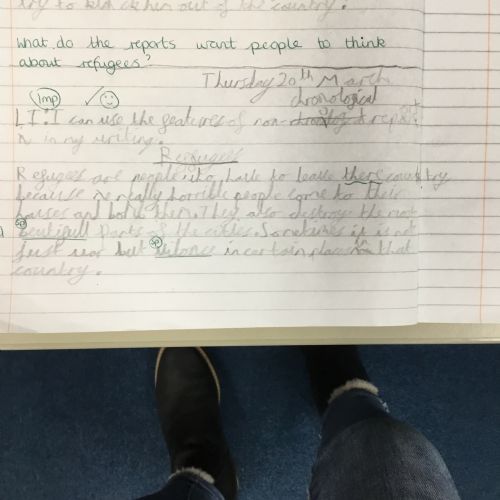 try to kick them out of the country.
What do the reports want people to think
about refugees?
Thursday 20th March
Imp
chronological
LI: I can use the features of non- report
in my writing.
Refugees
Refuges are people who have to leave there country
because really horrible people come to their
houses and bomb them. They also destroy the most
sp
beautifull parts of the cities. Sometimes it is not
sp
just war but vilonce in certain places in that
country.